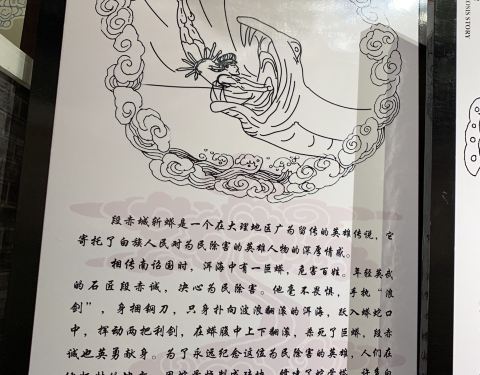 段赤城斩蟒是一个在大理地区广为留传的英雄传说，它
寄托了白族人民对为民除害的英雄人物的深厚情感。
相传南诏国时，洱海中有一巨蟒，危害百姓。年轻英武
的石匠段赤诚，决心为民除害。他毫不畏惧，手执“浪
剑”，身捆钢刀，只身扑向波浪翻滚的洱海，跃入蟒蛇口
中，挥动两把利剑，在蟒腹中上下翻滚，杀死了巨蟒，段赤
诚也英勇献身。为了永远纪念这位为民除害的英雄，人们在
STORY